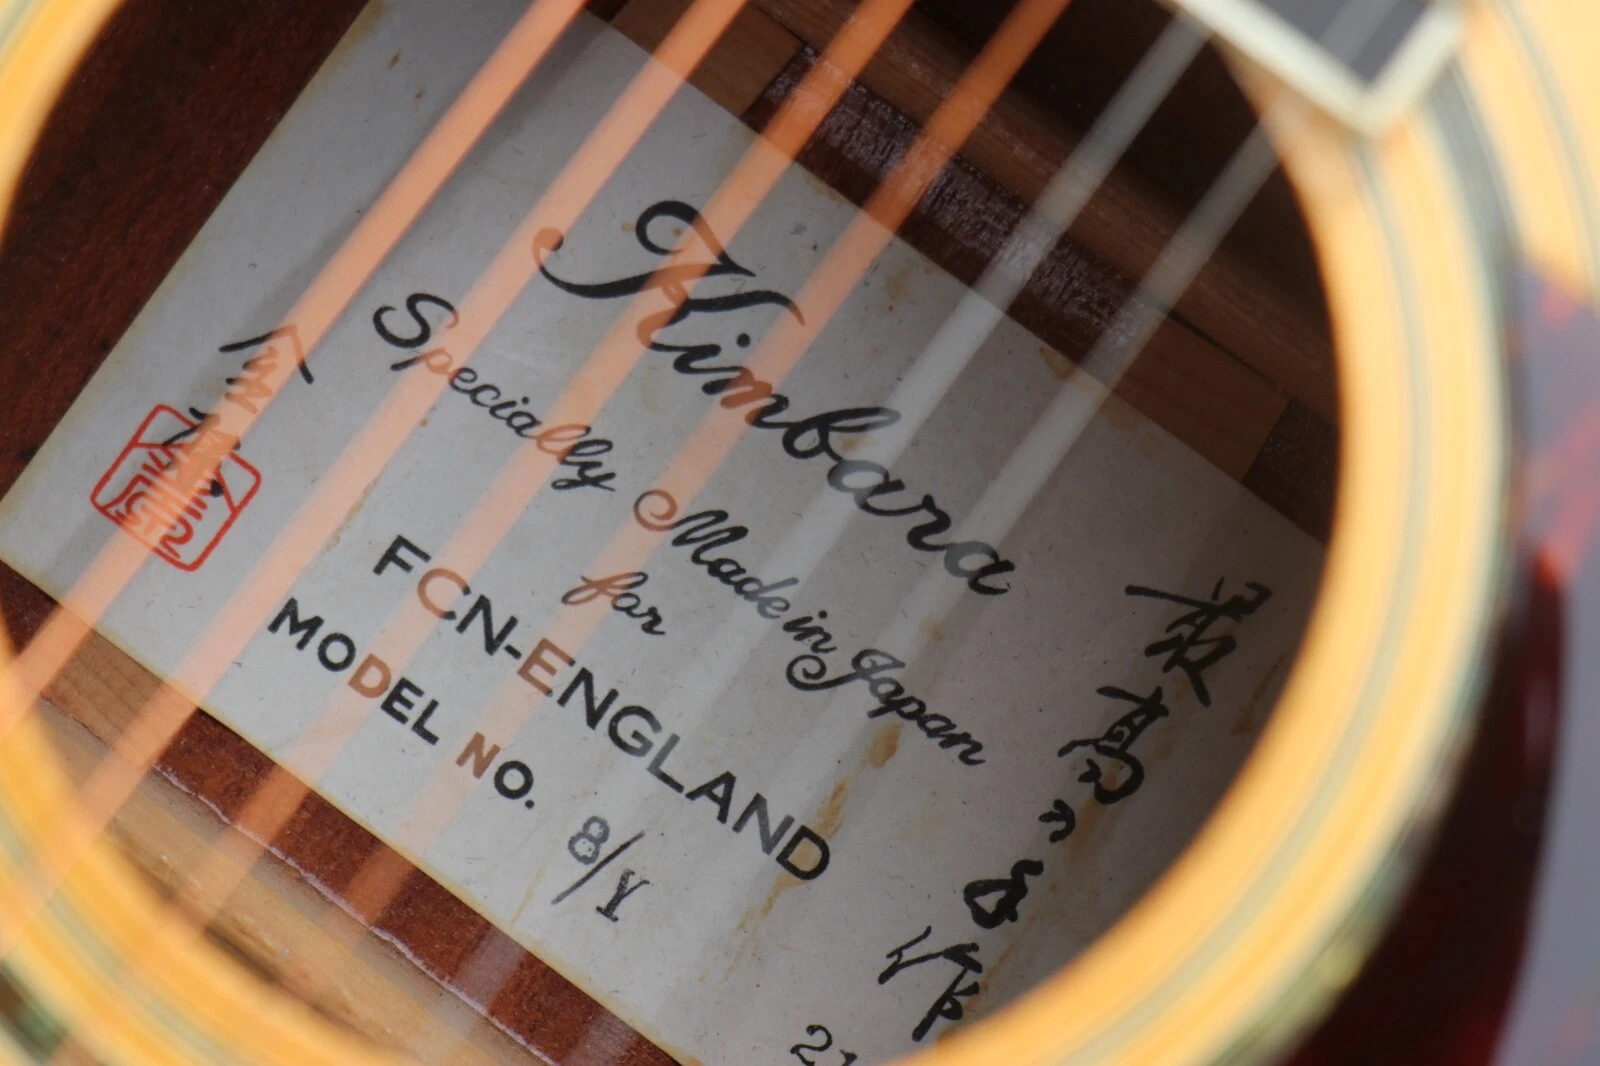 Kimbara
Specially Made in Japan
for
FCN-ENGLAND
MODEL NO. 8/Y
最高
作
21